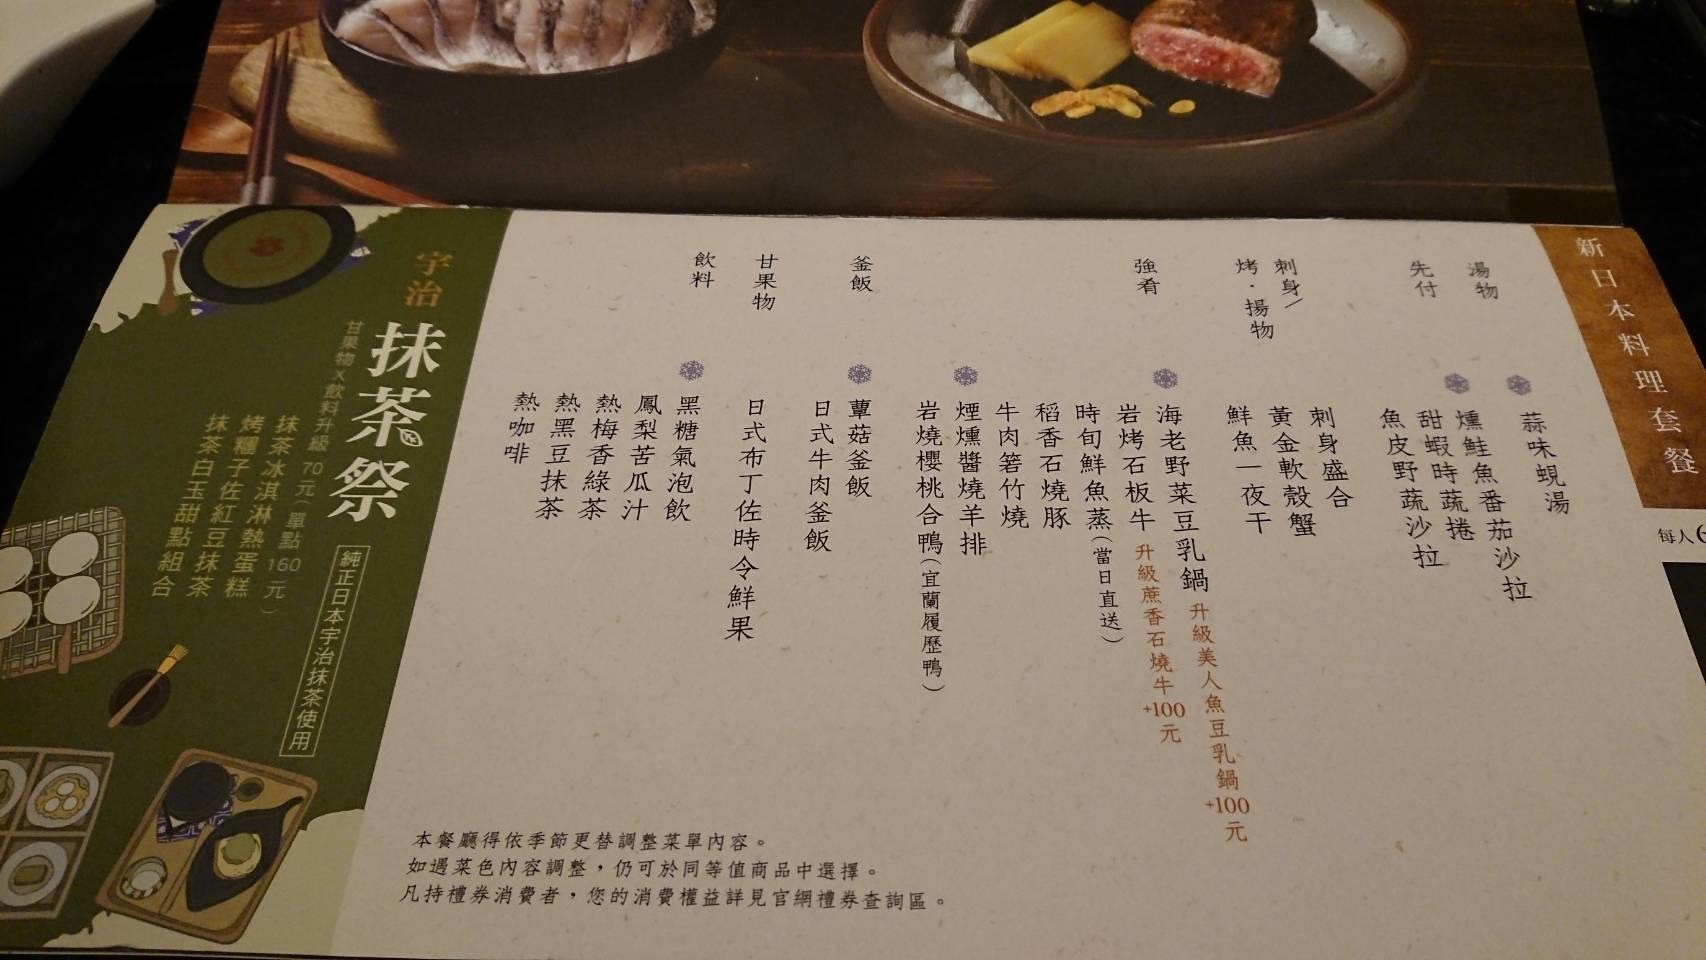 新日本料理套餐
每人6
湯物
蒜味蜆湯
先付
燻鮭魚番茄沙拉
甜蝦時蔬捲
魚皮野蔬沙拉
刺身/
烤·揚物
刺身盛合
黃金軟殼蟹
鮮魚一夜干
強肴
海老野菜豆乳鍋 升級美人魚豆乳鍋+100元
岩烤石板牛 升級蔗香石燒牛+100元
時旬鮮魚蒸(當日直送)
稻香石燒豚
牛肉箬竹燒
煙燻醬燒羊排
岩燒櫻桃合鴨(宜蘭履歷鴨)
釜飯
蕈菇釜飯
日式牛肉釜飯
甘果物
日式布丁佐時令鮮果
飲料
黑糖氣泡飲
鳳梨苦瓜汁
熱梅香綠茶
熱黑豆抹茶
熱咖啡
本餐廳得依季節更替調整菜單內容。
如遇菜色內容調整,仍可於同等值商品中選擇。
凡持禮券消費者,您的消費權益詳見官網禮券查詢區。
宇治
抹茶祭
純正日本宇治抹茶使用
甘果物X飲料升級 70元(單點160元)
抹茶冰淇淋熱蛋糕
烤糰子佐紅豆抹茶
抹茶白玉甜點組合